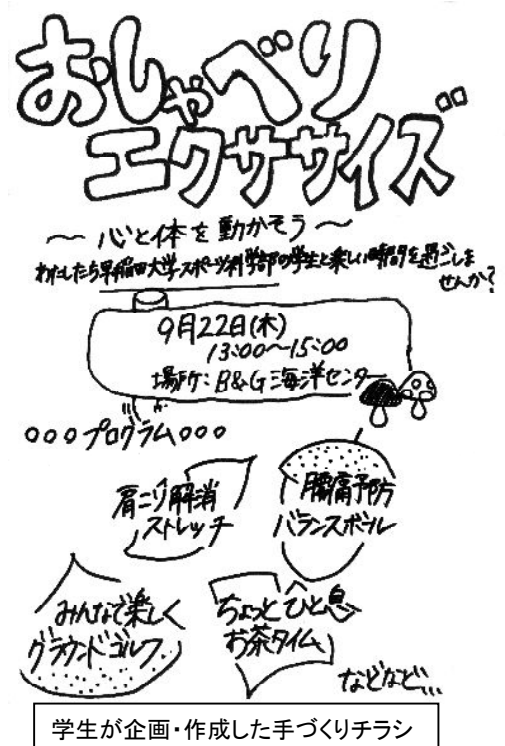 おしゃべり
エクササイズ
～ 心と体を動かそう ～
わたしたち早稲田大学スポーツ科学部の学生と楽しい時間を過ごしま
せんか?
9月22日(木)
13:00～15:00
場所:B&G海洋センター
○○○プログラム○○○
肩こり解消
ストレッチ
腰痛予防
バランスボール
みんなで楽しく
グラウンドゴルフ
ちょっとひと息
お茶タイム
などなど...
学生が企画・作成した手づくりチラシ